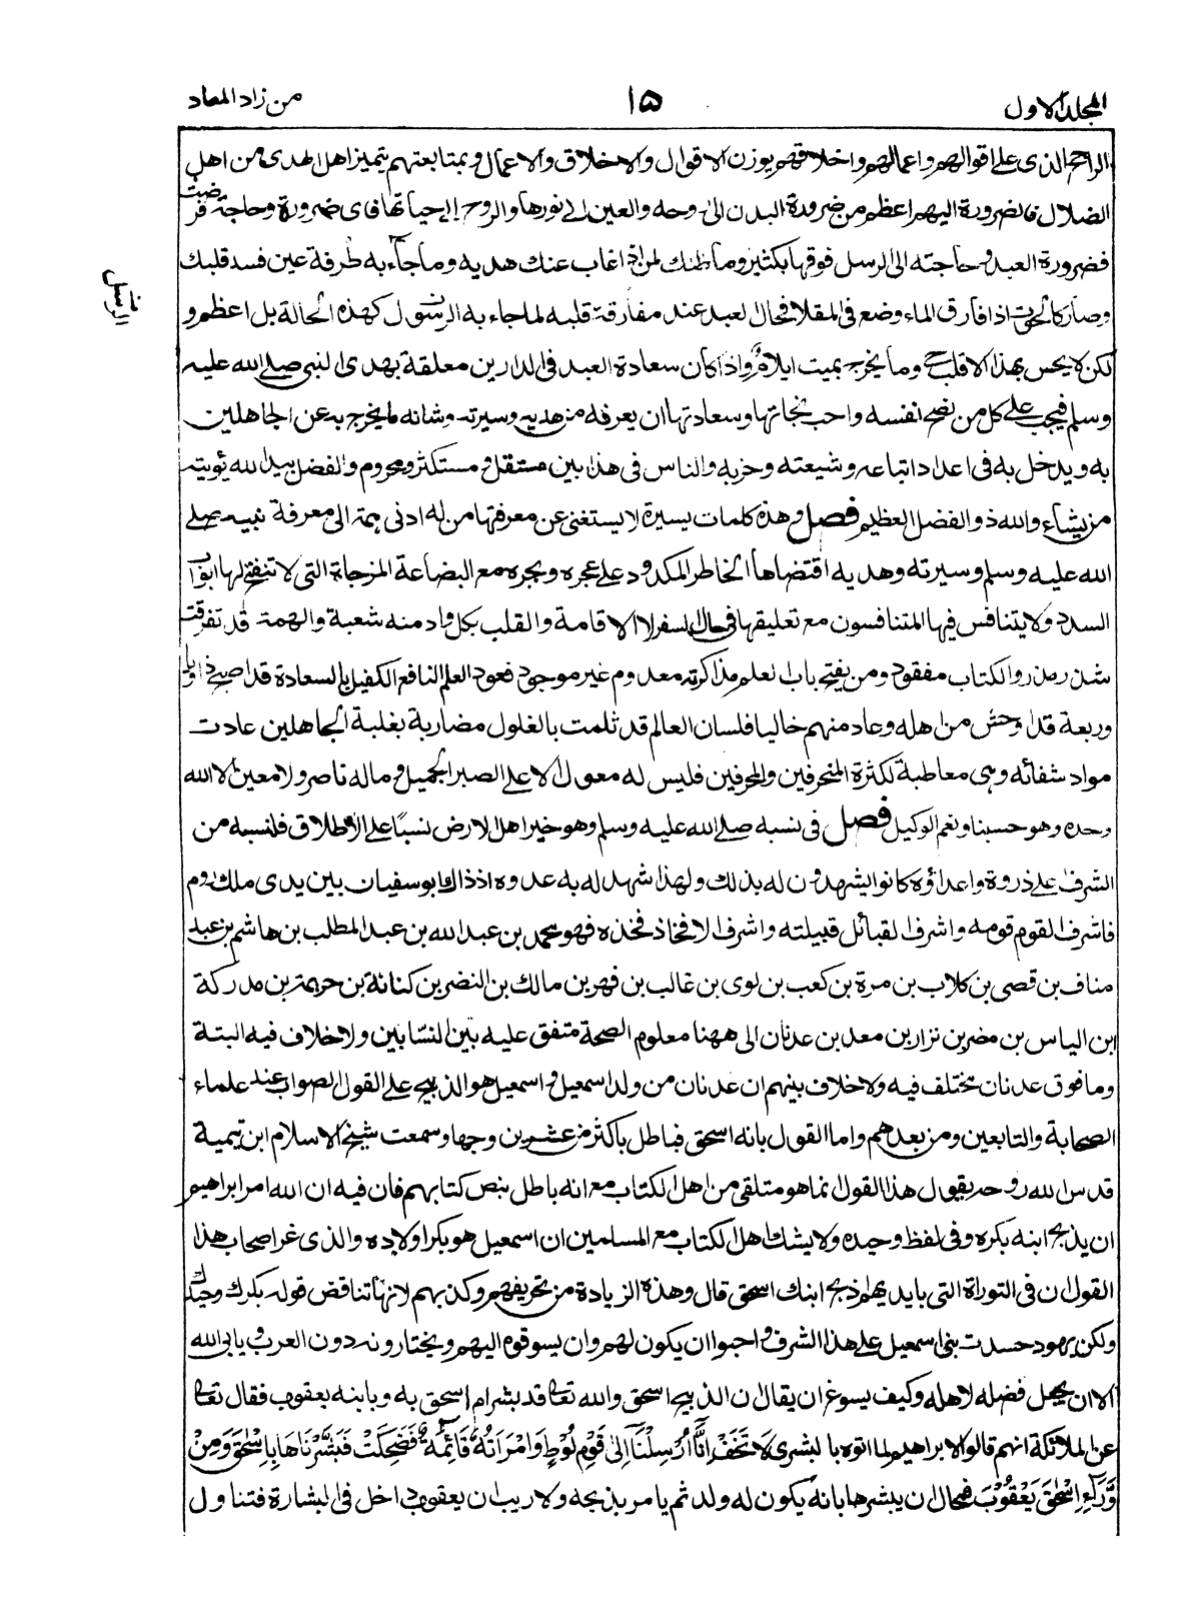 المجلد الاول
١٥
من زاد المعاد
الراجح الذی علی اقوالهم واعمالهم واخلاقهم یوزن الاقوال والاخلاق والاعمال وبمتابعتهم یتمیز اهل الهدی من اهل
الضلال فالضرورة الیهم اعظم من ضرورة البدن الی روحه والعین الی نورها والروح الی حیاتها فای ضرورة وحاجة فرضت
فضرورة العبد وحاجته الی الرسل فوقها بکثیر وما ظنك لمن اذا غاب عنك هدیه وما جاء به طرفة عین فسد قلبك
وصار کالحوت اذا فارق الماء وضع فی المقلا فحال العبد عند مفارقة قلبه لما جاء به الرسول کهذه الحالة بل اعظم و
الرسل
لکن لا یحس بهذا الا قلب حی وما یخرج بمیت ایلام واذا کان سعادة العبد فی الدارین معلقة بهدی النبی صلی الله علیه
وسلم فیجب علی کل من نصح نفسه واحب نجاتها وسعادتها ان یعرفه من هدیه وسیرته وشانه لما یخرج به عن الجاهلین
به ویدخل به فی اعداد اتباعه وشیعته وحزبه والناس فی هذا بین مستقل ومستکثر ومحروم والفضل بید الله یؤتیه
من یشاء والله ذو الفضل العظیم فصل وهذه کلمات یسیرة لا یستغنی عن معرفتها من له ادنی همة الی معرفة نبیه صلی
الله علیه وسلم وسیرته وهدیه اقتضاها الخاطر المکدود علی عجره وبجره مع البضاعة المزجاة التی لا تنفتح لها ابواب
السدد ولا یتنافس فیها المتنافسون مع تعلیقها فی حال السفر لا الاقامة والقلب بکل واد منه شعبة والهمة قد تفرقت
شذر مذر والکتاب مفقود ومن یفتح باب العلم مذاکرته معدوم غیر موجود فعود العلم النافع الکفیل بالسعادة قد اصبح ذاویا
وربعة قد اوحش من اهله وعاد منهم خالیا فلسان العالم قد ثلمت بالغلول مضاربة بغلبة الجاهلین عادت
مواد شفائه وهی معاطبة لکثرة المنحرفین والمحرفین فلیس له معول الا علی الصبر الجمیل وماله ناصر ولا معین الا الله
وحده وهو حسبنا ونعم الوکیل فصل فی نسبه صلی الله علیه وسلم وهو خیر اهل الارض نسبًا علی الاطلاق فلنسبه من
الشرف علی ذروة واعداؤه کانوا یشهدون له بذلك ولهذا شهد له به عدوه اذذاك ابو سفیان بین یدی ملك روم
فاشرف القوم قومه واشرف القبائل قبیلته واشرف الافخاذ فخذه فهو محمد بن عبد الله بن عبد المطلب بن هاشم بن عبد
مناف بن قصی بن کلاب بن مرة بن کعب بن لوی بن غالب بن فهر بن مالك بن النضر بن کنانة بن خزیمة بن مدرکة
ابن الیاس بن مضر بن نزار بن معد بن عدنان الی ههنا معلوم الصحة متفق علیه بین النسّابین ولا خلاف فیه البتة
وما فوق عدنان مختلف فیه ولا خلاف بینهم ان عدنان من ولد اسمعیل واسمعیل هو الذبیح علی القول الصواب عند علماء
الصحابة والتابعین ومن بعدهم واما القول بانه اسحق فباطل باکثر من عشرین وجها وسمعت شیخ الاسلام ابن تیمیة
قدس الله روحه یقول هذا القول انما هو متلقی من اهل الکتاب مع انه باطل بنص کتابهم فان فیه ان الله امر ابراهیم
ان یذبح ابنه بکره وفی لفظ وحیده ولا یشك اهل الکتاب مع المسلمین ان اسمعیل هو بکر اولاده والذی غر اصحاب هذا
القول ان فی التوراة التی بایدیهم اذبح ابنك اسحق قال وهذه الزیادة من تحریفهم وکذبهم لانها تناقض قوله بکرك وحیدك
ولکن یهود حسدت بنی اسمعیل علی هذا الشرف واحبوا ان یکون لهم وان یسوقوه الیهم ویختارونه دون العرب ویابی الله
الا ان یجعل فضله لاهله وکیف یسوغ ان یقال ان الذبیح اسحق والله تعالی قد بشر ام اسحق به وبابنه یعقوب فقال تعالی
عن الملائکة انهم قالوا لابراهیم لما اتوه بالبشری لَا تَخَفْ اِنَّا اُرْسِلْنَا اِلٰی قَوْمِ لُوْطٍ وَامْرَاَتُهُ قَائِمَةٌ فَضَحِکَتْ فَبَشَّرْنَاهَا بِاِسْحٰقَ وَمِنْ
وَّرَاءِ اِسْحٰقَ یَعْقُوْبَ فمحال ان یبشرها بانه یکون له ولد ثم یامر بذبحه ولا ریب ان یعقوب داخل فی البشارة فتناول